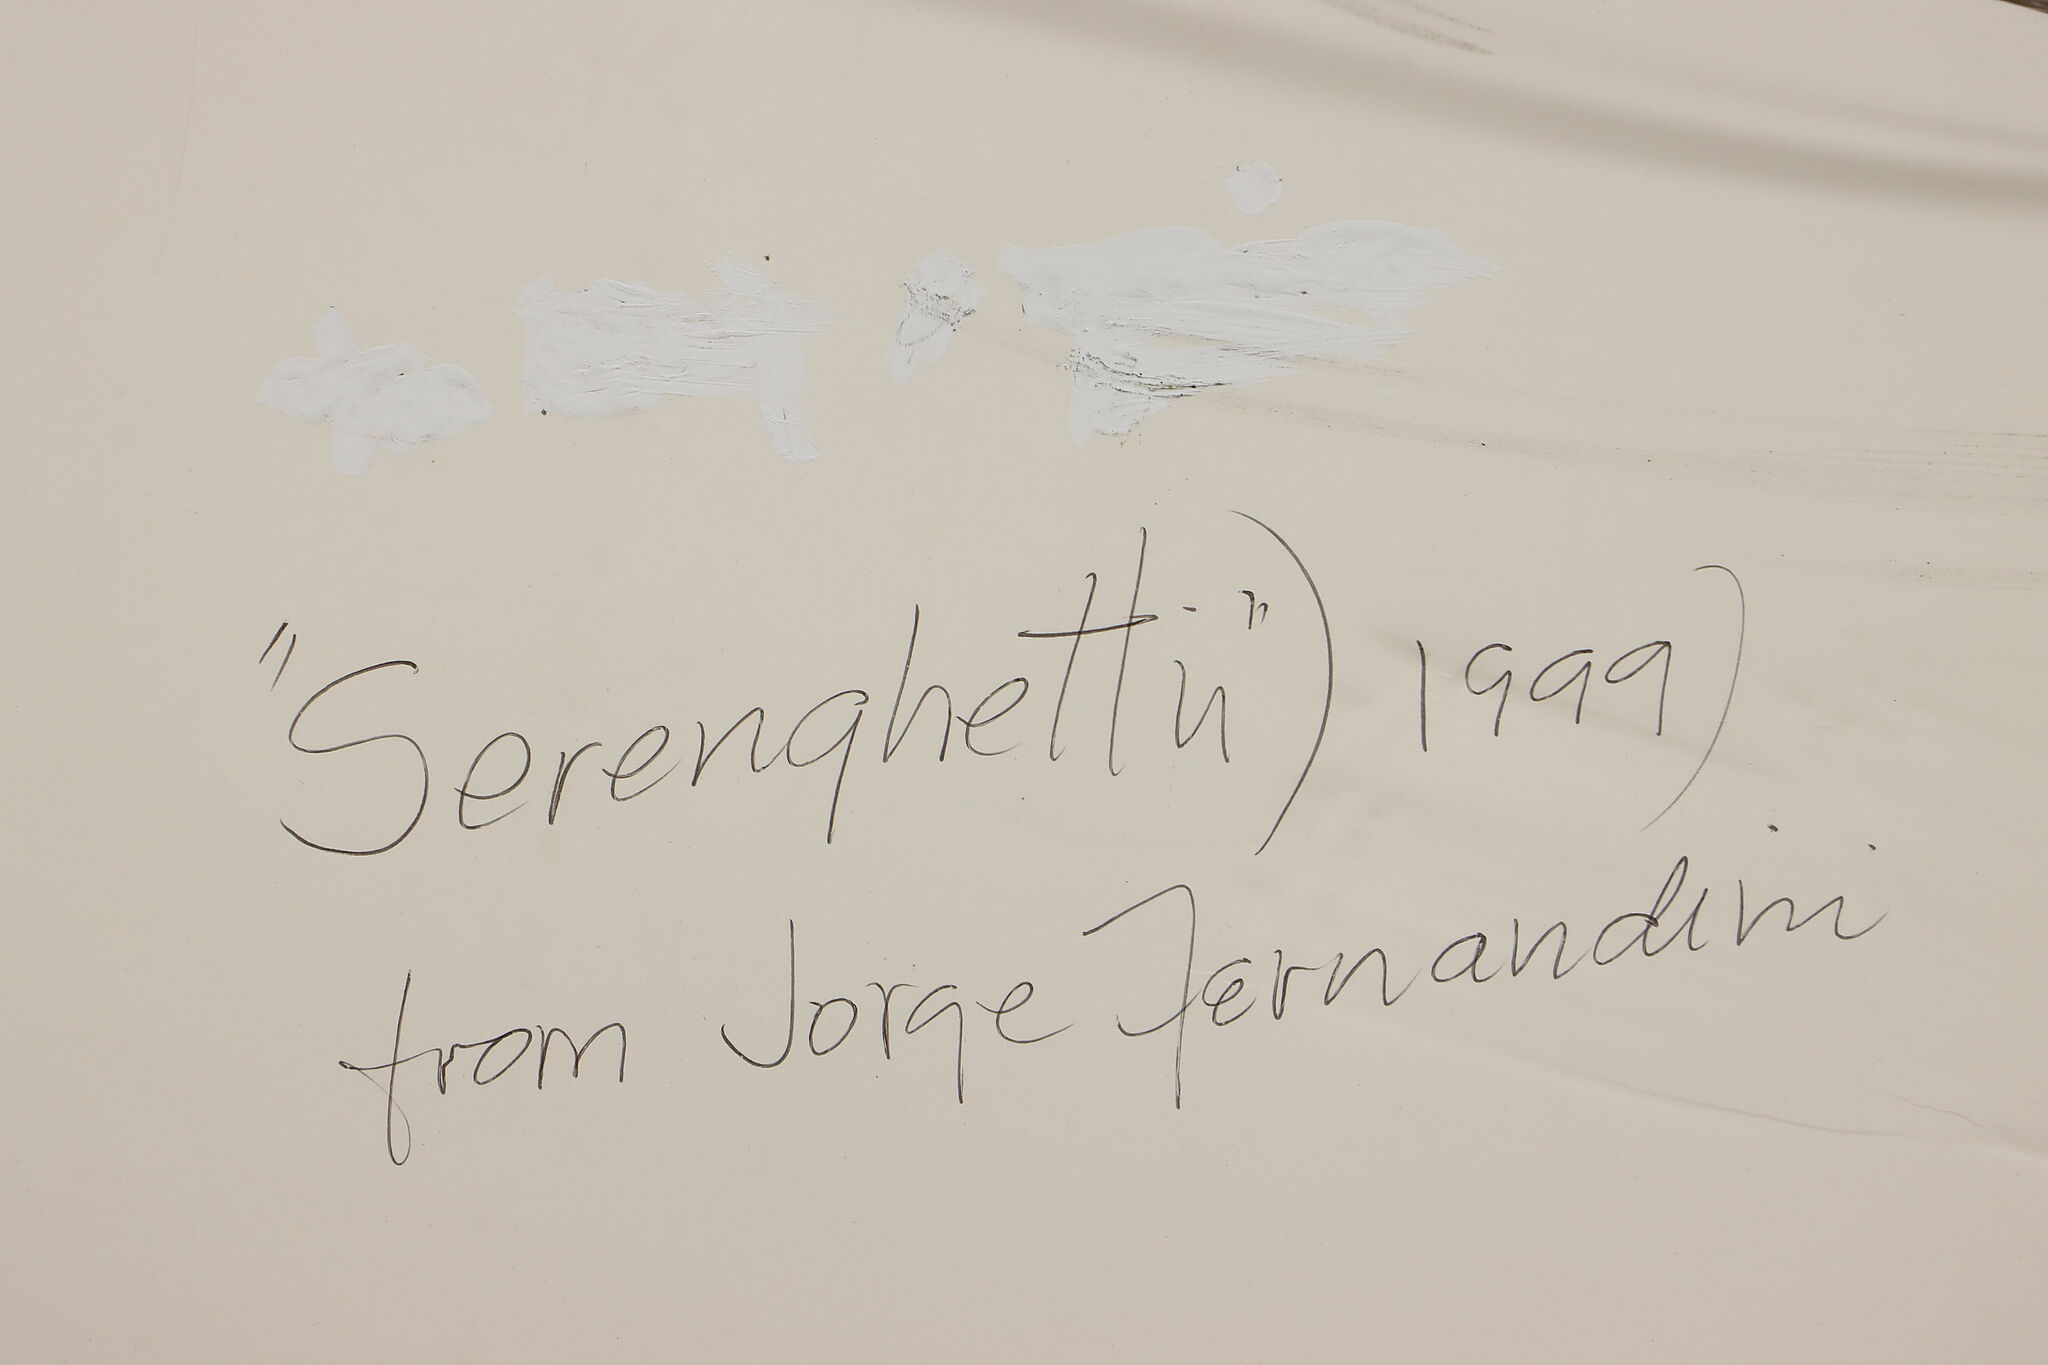 "Serenghetti") 1999)
from Jorge Fernandini